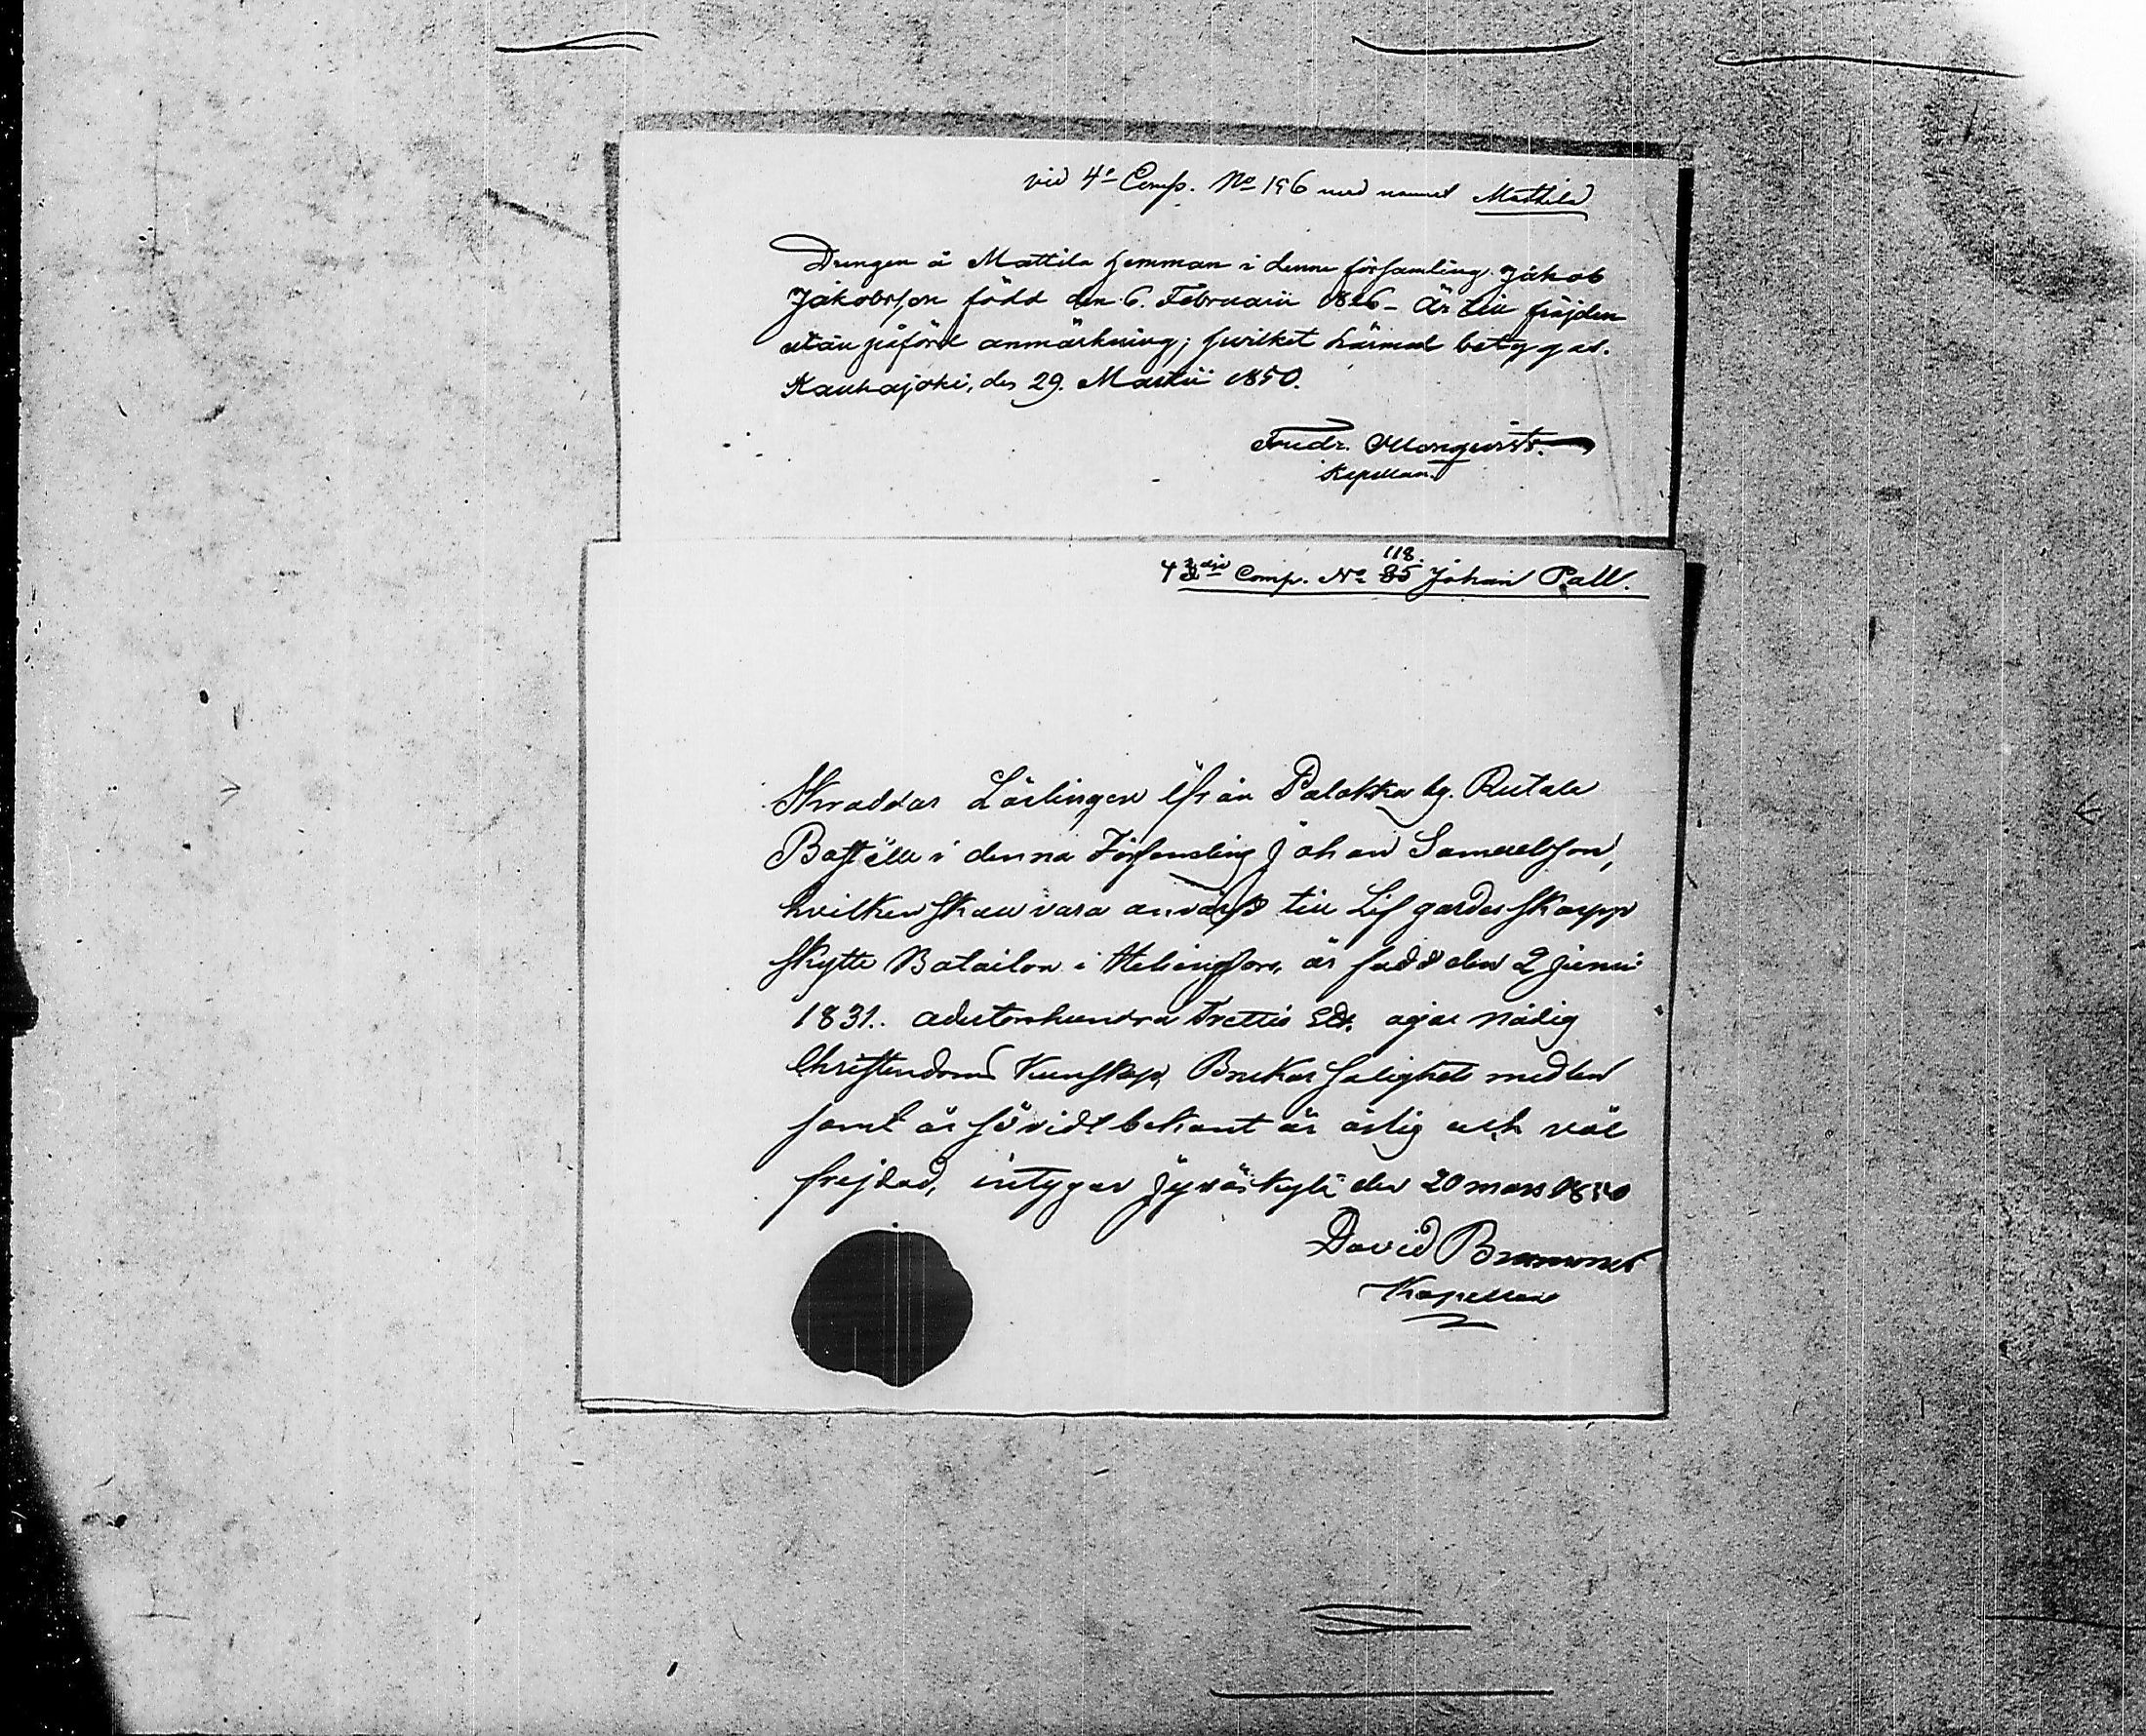 vid 4de Comp. No 196 med namnet Mattila
Drengen å Mattila hemman i denna församling Jakob
Jakobsson född den 6. Februarii 1826 – är till fräjden
utan påförd anmärkning; hvilket härmed betygas.
Kauhajoki, den 29. Martii 1850.
Fredr.
Kapellan.
118.
4 Comp. No 85 Johan Pall.
Skraddar Lärlingen ifrån Palokka by. Rutala
Boställe i denna Församling Johan Samuelsson,
hvilken skall vara till Lif gardes Skarpp
Skytte Batailon i Helsingfors, är född den 2 Junii
1831. adertonhundra Trettio Ett. ager Nödig
Christendoms Kunskap, Brukar Salighets medlen
samt är så vidt bekant är ärlig och väl
frejdad, intygar Jyväskylä den 20 mars 1850
David
Kapellan